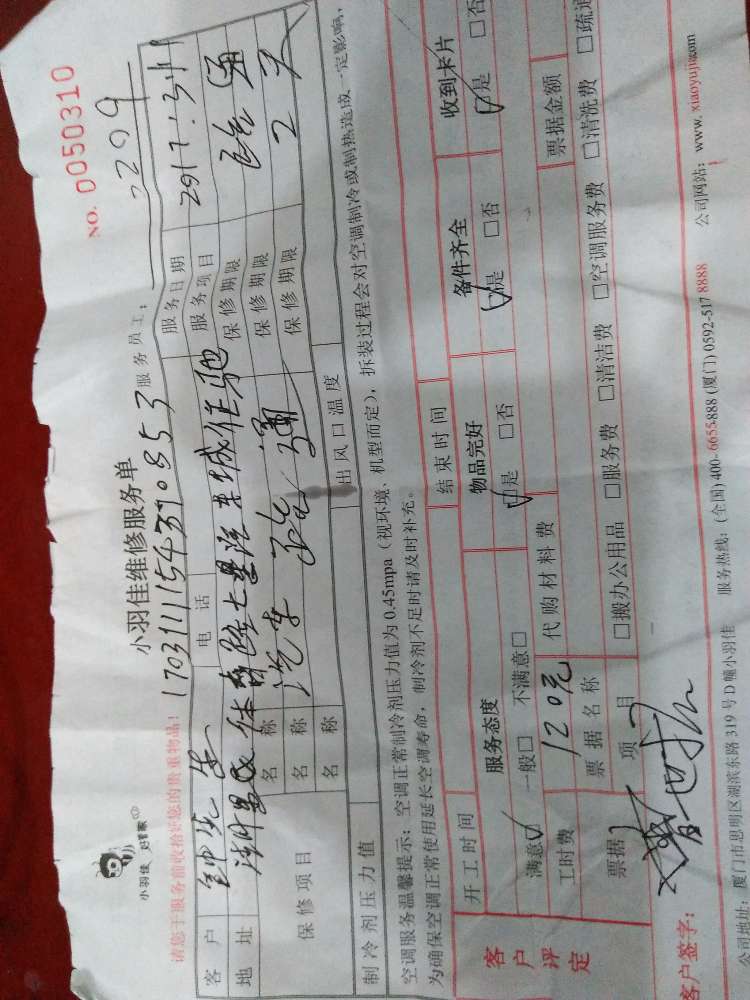 小羽佳 好管家
小羽佳维修服务单
NO. 0050310
请您于服务前收拾好您的贵重物品!
170311154390853
服务员工: 209
客户 钟先生 电话 服务日期 2017.3.11
地址 体育路七星汽车城任驰 服务项目
保修项目
名称 汽车 保修期限
名称 疏通 保修期限
名称 保修期限 2天
制冷剂压力值 出风口温度
空调服务温馨提示: 空调正常制冷剂压力值为 0.45mpa (视环境、机型而定), 拆装过程会对空调制冷或制热造成一定影响,
为确保空调正常使用延长空调寿命, 制冷剂不足时请及时补充。
客户评定
开工时间 结束时间
服务态度 物品完好 备件齐全 收到卡片
满意☑ 一般□ 不满意□ ☑是 □否 ☑是 □否 ☑是 □否
工时费 120元 代购材料费 票据金额
票据 票据名称 项目 □搬办公用品 □服务费 □清洁费 □空调服务费 □清洗费 □疏通
客户签字:
公司地址: 厦门市思明区湖滨东路 319 号 D 幢小羽佳 服务热线: (全国) 400-6655-888 (厦门) 0592-517 8888 公司网站: www.xiaoyujia.com